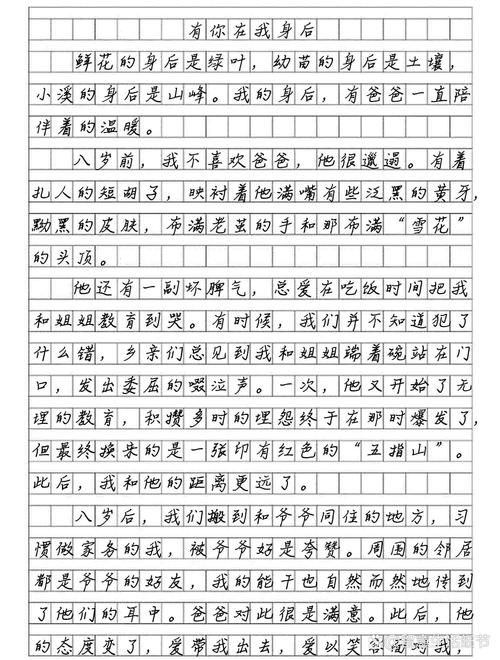 有你在我身后
鲜花的身后是绿叶，幼苗的身后是土壤，
小溪的身后是山峰。我的身后，有爸爸一直陪
伴着的温暖。
八岁前，我不喜欢爸爸，他很邋遢。有着
扎人的短胡子，映衬着他满嘴有些泛黑的黄牙，
黝黑的皮肤，布满老茧的手和那布满“雪花”
的头顶。
他还有一副坏脾气，总爱在吃饭时间把我
和姐姐教育到哭。有时候，我们并不知道犯了
什么错，乡亲们总见到我和姐姐端着碗站在门
口，发出委屈的啜泣声。一次，他又开始了无
理的教育，积攒多时的埋怨终于在那时爆发了，
但最终换来的是一张印有红色的“五指山”。
此后，我和他的距离更远了。
八岁后，我们搬到和爷爷同住的地方，习
惯做家务的我，被爷爷好是夸赞。周围的邻居
都是爷爷的好友，我的能干也自然而然地传到
了他们的耳中。爸爸对此很是满意。此后，他
的态度变了，爱带我出去，爱以笑容面对我，